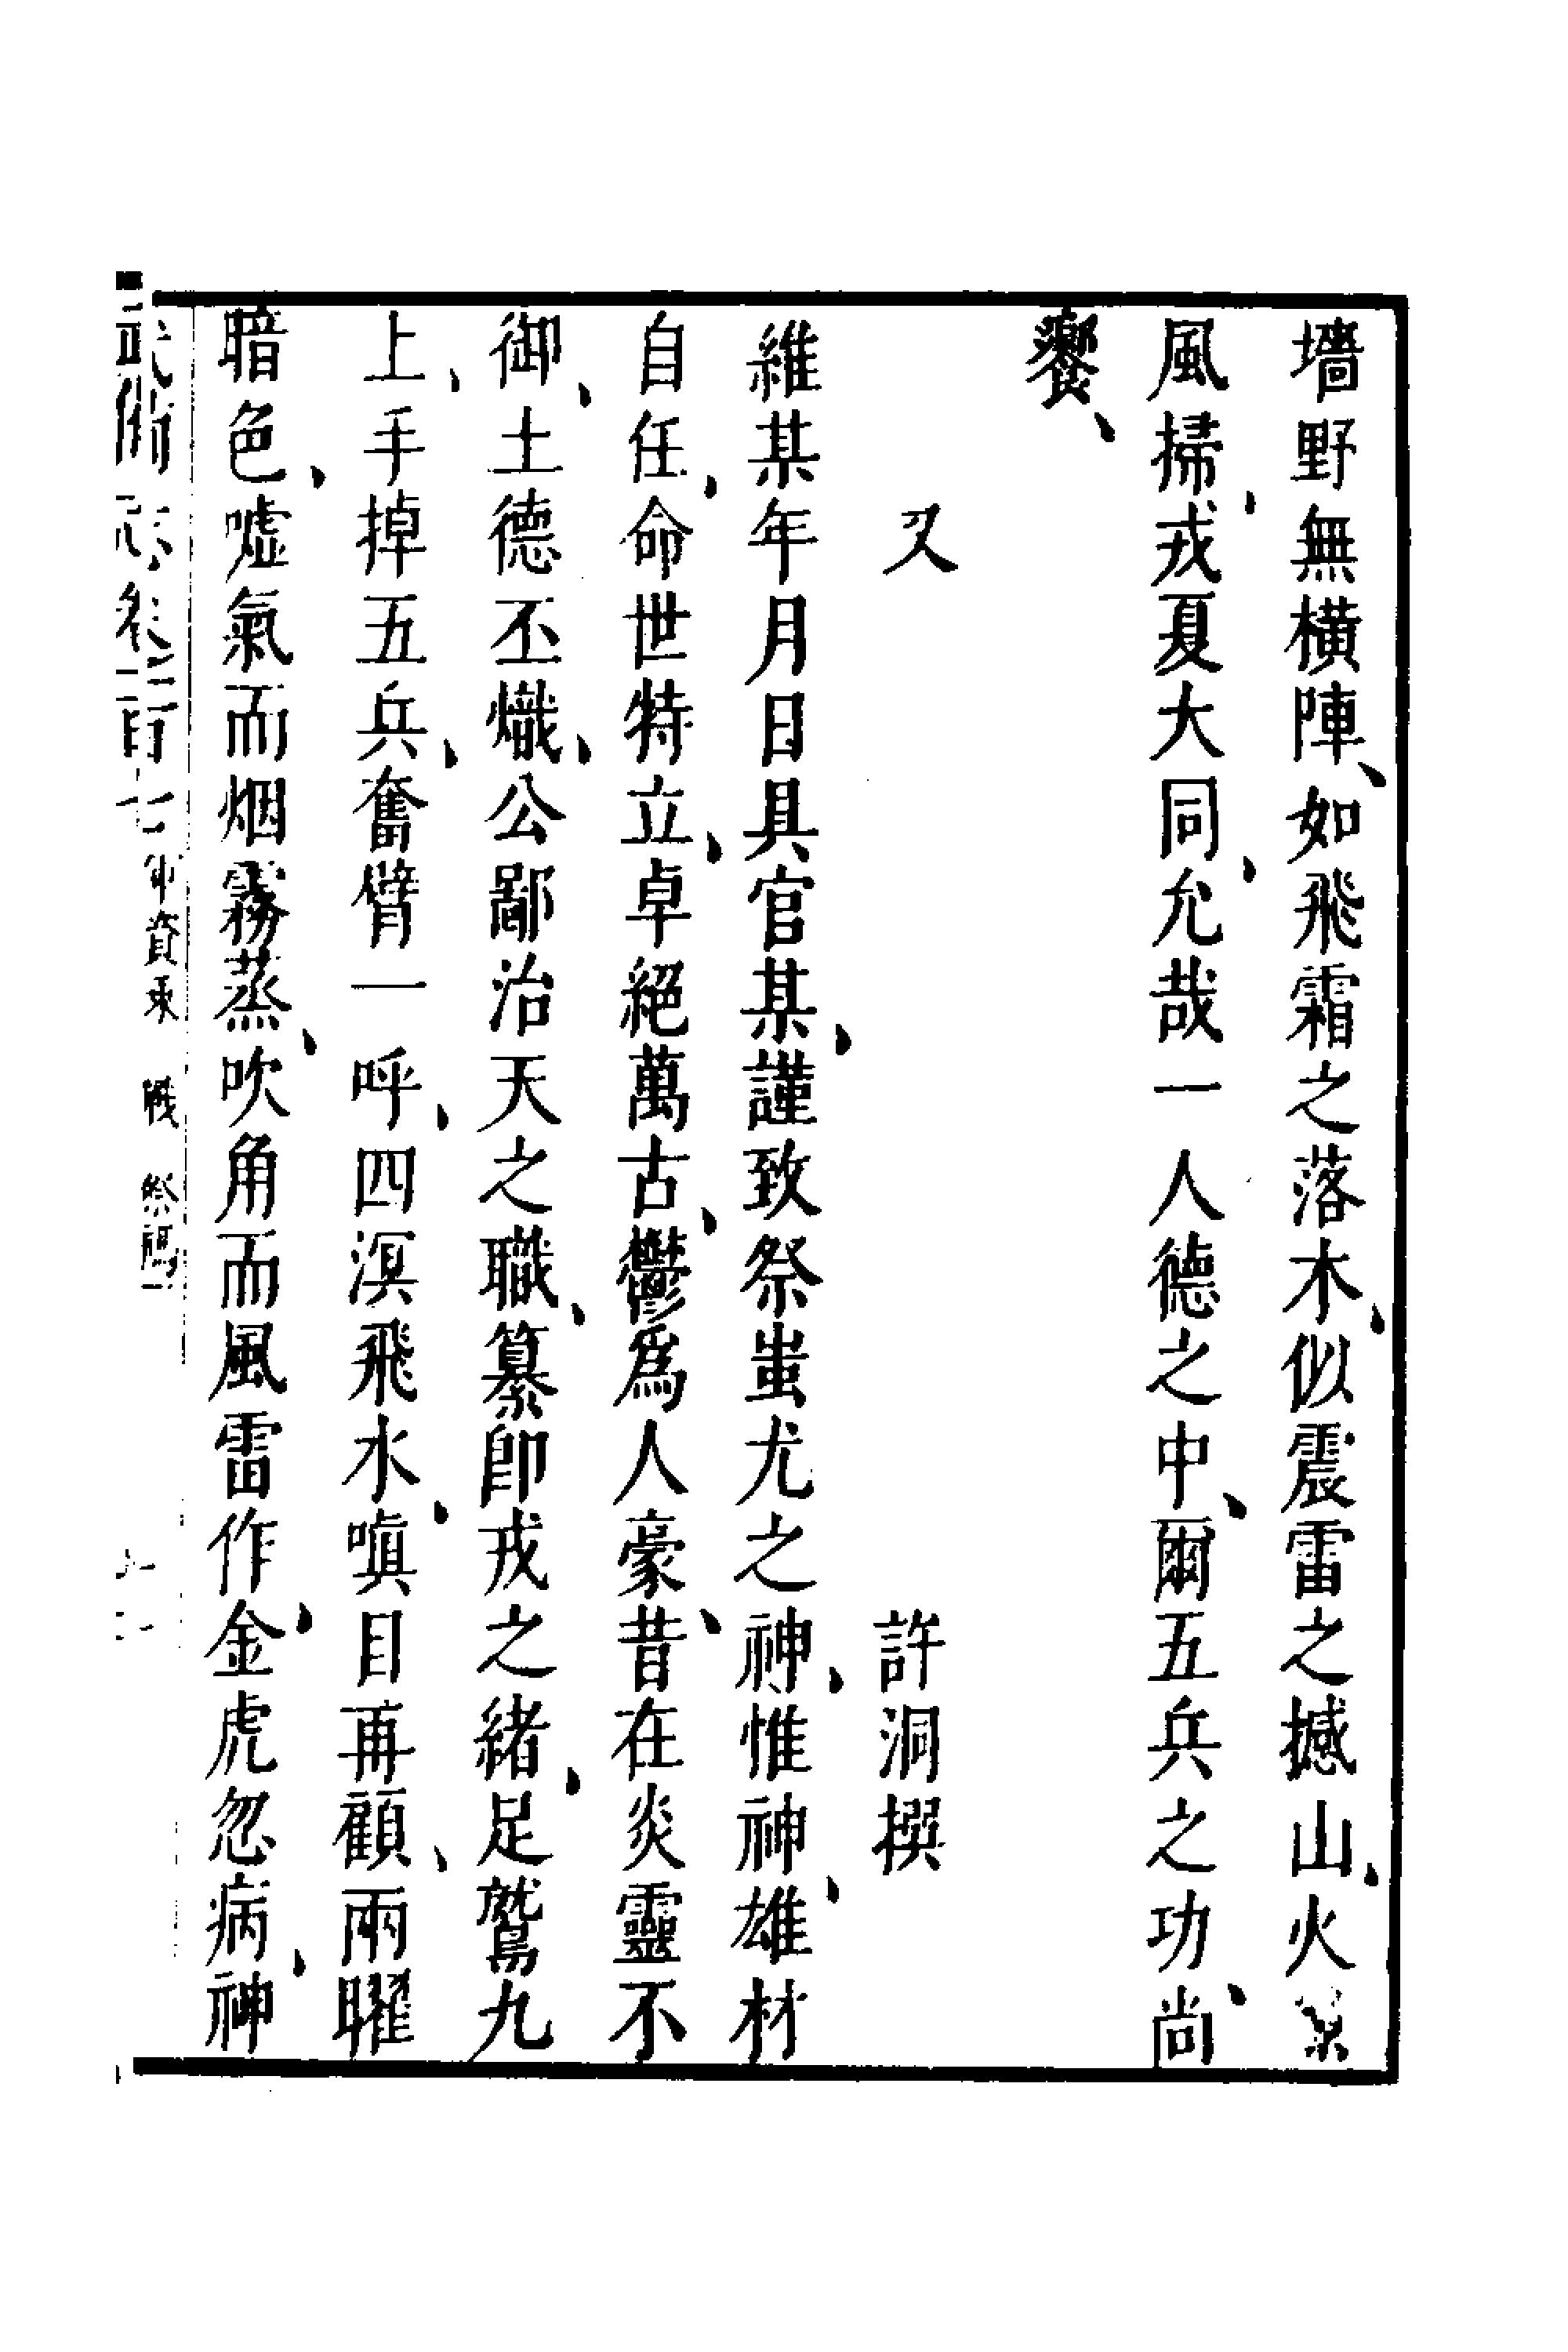 墻野無橫陣、如飛霜之落木、似震雷之撼山、火
風掃、戎夏大同、允哉一人德之中、爾五兵之功、尚
饗、
又 許洞撰
維某年月日具官某、謹致祭蚩尤之神、惟神、雄材
自任、命世特立、卓絕萬古、鬱爲人豪、昔在炎靈不
御、土德丕熾、公鄙治天之職、纂卽戎之緒、足驚九
上、手掉五兵、奮臂一呼、四溟飛水、嗔目再顧、兩曜
暗色、噓氣而烟霧蒸、吹角而風雷作、金虎忽病、神
武備志卷一百七 軍資乘 戰 祭禡